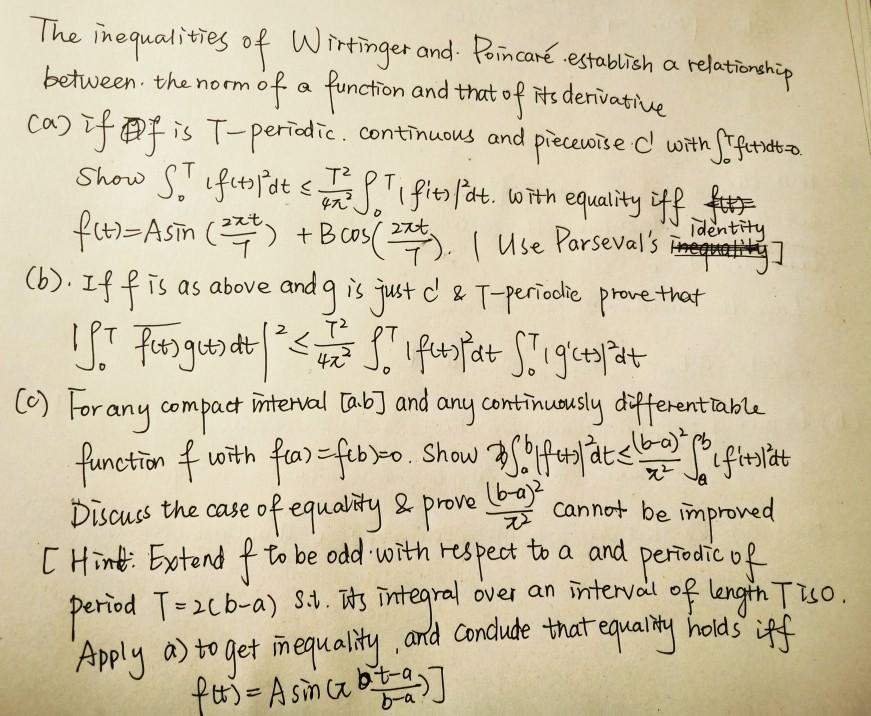 The inequalities of Wirtinger and. Poincaré establish a relationship
between. the norm of a function and that of its derivative
(a) if f is T-periodic. continuous and piecewise C' with ∫₀ᵀ f(t)dt=0.
Show ∫₀ᵀ |f(t)|²dt ≤ T²/4π² ∫₀ᵀ |f'(t)|²dt. with equality iff
f(t)=A sin (2πt/T) + B cos(2πt/T). [ Use Parseval's identity ]
(b). If f is as above and g is just C' & T-periodic prove that
|∫₀ᵀ \overline{f(t)} g(t) dt|² ≤ T²/4π² ∫₀ᵀ |f(t)|²dt ∫₀ᵀ |g'(t)|²dt
(c) For any compact interval [a.b] and any continuously differentiable
function f with f(a)=f(b)=0. Show ∫ₐᵇ|f(t)|²dt ≤ (b-a)²/π² ∫ₐᵇ |f'(t)|²dt
Discuss the case of equality & prove (b-a)²/π² cannot be improved
[ Hint: Extend f to be odd with respect to a and periodic of
period T = 2(b-a) s.t. its integral over an interval of length T is 0.
Apply a) to get inequality, and conclude that equality holds iff
f(t) = A sin(π t-a/b-a)]